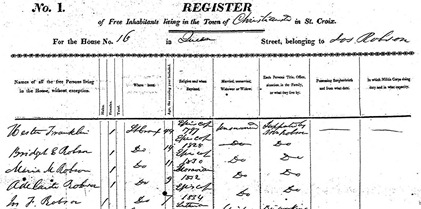 No. 1. REGISTER
of Free Inhabitants living in the Town of Christiansted in St. Croix.
For the House No. 16 in Queen Street, belonging to Jos Robson
Names of all the free Persons living in the House, without exception.
Male.
Female.
Total.
Where born.
Age, the running year included.
Religion and when Baptized.
Married, unmarried, Widower or Widow.
Each Persons Title, Office, situation in the Family, or what they live by.
Possessing Burgherbrief and from what date.
In which Militia Corps doing duty and in what capacity.
Hester Franklin 1 St Croix 44 Episcop 1797 Unmarried Supported by
Bridget E Robson 1 Do 14 Episcop 1824 Do Do
Maria M Robson 1 Do 11 Episcop 1830 Do Do
Adelaide Robson 1 Do 9 Moravian 1832 Do Do
Jos F. Robson 1 Do 7 Episcop 1834